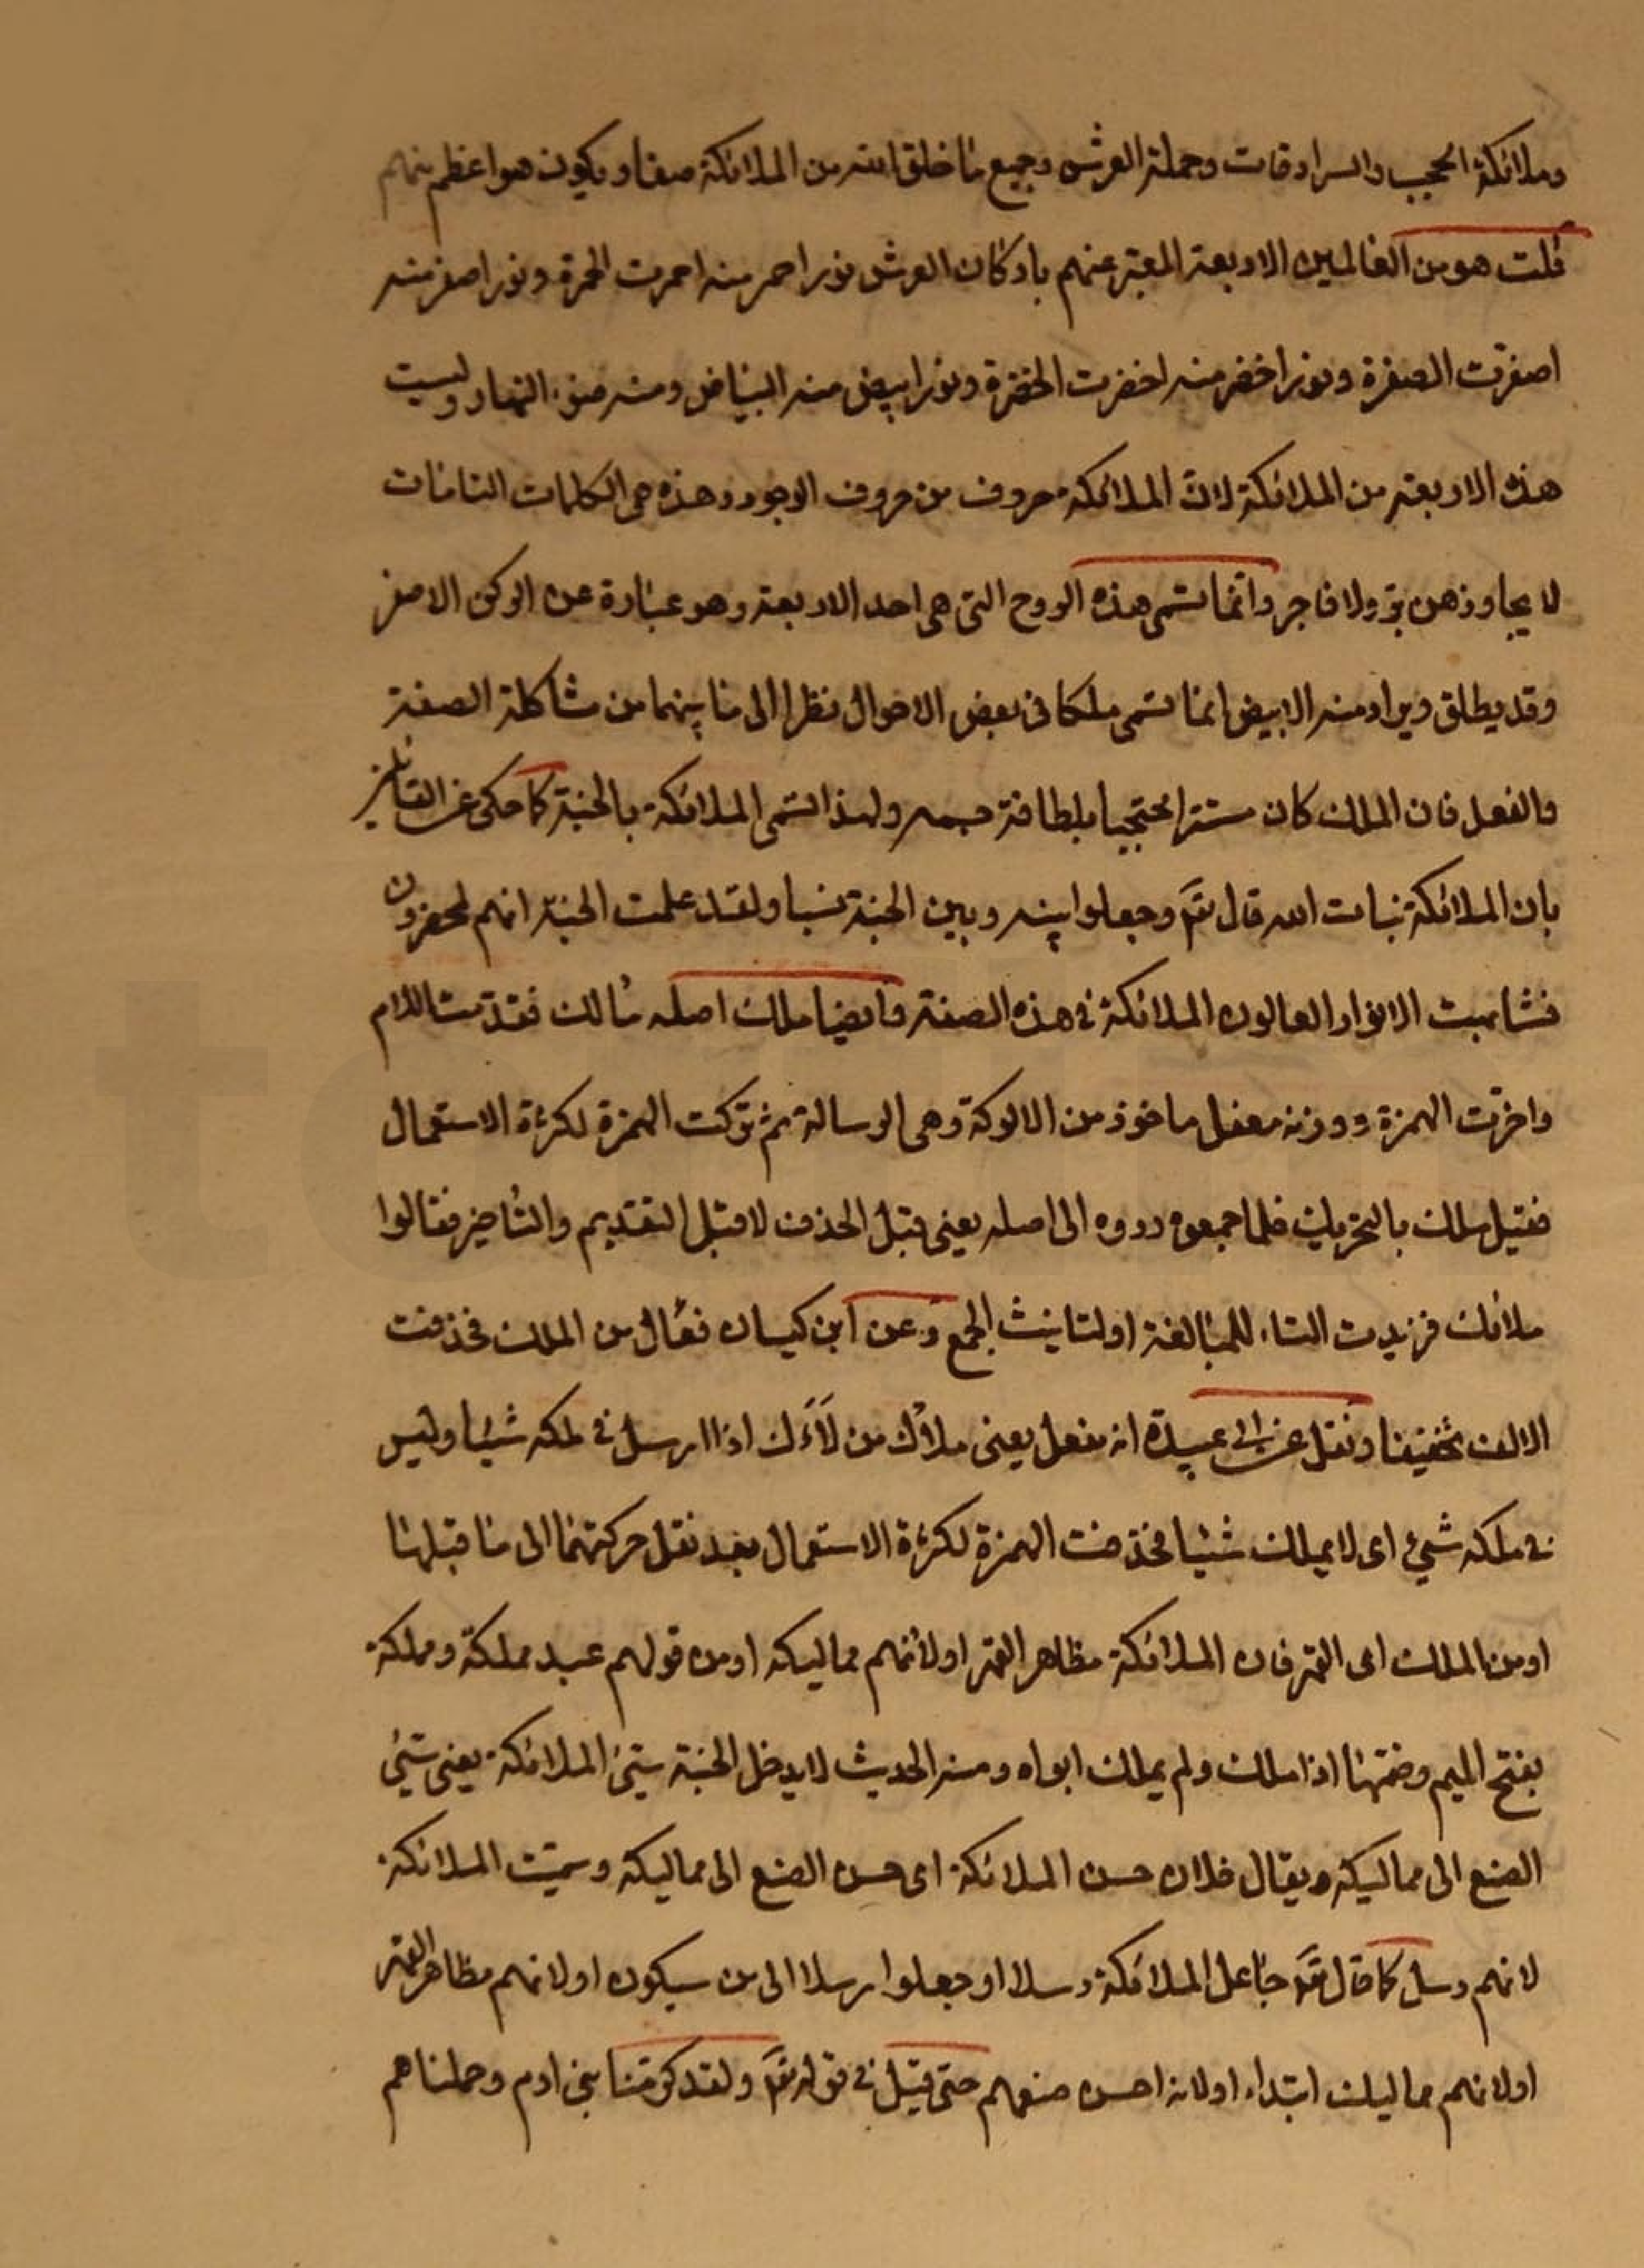 وملائكة الحجب والسرادقات وحملة العرش وجميع ما خلق الله من الملائكة صفا ويكون هو اعظم منهم
قلت هو من العالين الاربعة المعبر عنهم باركان العرش نور احمر منه احمرت الحمرة ونور اصفر منه
اصفرت الصفرة ونور اخضر منه اخضرت الخضرة ونور ابيض منه البياض ومنه ضوء النهار وليست
هذه الاربعة من الملائكة لان الملائكة حروف من حروف الوجود وهذه هى الكلمات التامات
لا يجاوزهن بر ولا فاجر وانما تسمى هذه الروح التى هى احد الاربعة وهو عبارة عن الركن الاصفر
وقد يطلق ويراد منه الابيض انما تسمى ملكا فى بعض الاحوال نظرا الى ما بينهما من مشاكلة الصفة
والفعل فان الملك كان مستترا محتجبا بلطافة جسمه ولهذا تسمى الملائكة بالجنة كما حكى عن القائلين
بان الملائكة بنات الله قال تع وجعلوا بينه وبين الجنة نسبا ولقد علمت الجنة انهم لمحضرون
فشابهت الانوار العالون الملائكة فى هذه الصفة وايضا ملك اصله مالك فقدمت اللام
واخرت الهمزة ووزنه معفل ماخوذ من الالوكة وهى الرسالة ثم تركت الهمزة لكثرة الاستعمال
فقيل ملك بالتحريك فلما جمعوه ردوه الى اصله يعنى قبل الحذف لا قبل التقديم والتاخير فقالوا
ملائك فزيدت التاء للمبالغة او لتانيث الجمع وعن ابن كيسان فعأل من الملك فحذفت
الالف تخفيفا ونقل عن ابى عبيدة انه مفعل يعنى ملاك من لأك اذا ارسل فى ملكه شيئا وليس
فى ملكه شيئ اى لا يملك شيئا فحذفت الهمزة لكثرة الاستعمال بعد نقل حركتها الى ما قبلها
او من الملك اى القهر فان الملائكة مظاهر القهر او لانهم مماليكه او من قولهم عبد مملكة ومملكة
بفتح الميم وضمها اذا ملك ولم يملك ابواه ومنه الحديث لا يدخل الجنة سيئ الملائكة يعنى سيئ
الصنع الى مماليكه ويقال فلان حسن الملائكة اى حسن الصنع الى مماليكه وسميت الملائكة
لانهم رسل كما قال تع جاعل الملائكة رسلا او جعلوا رسلا الى من سيكون او لانهم مظاهر القهر
او لانهم مماليك ابتداء او لانه احسن صنعهم حتى قيل فى قوله تع ولقد كرمنا بنى ادم وحملناهم